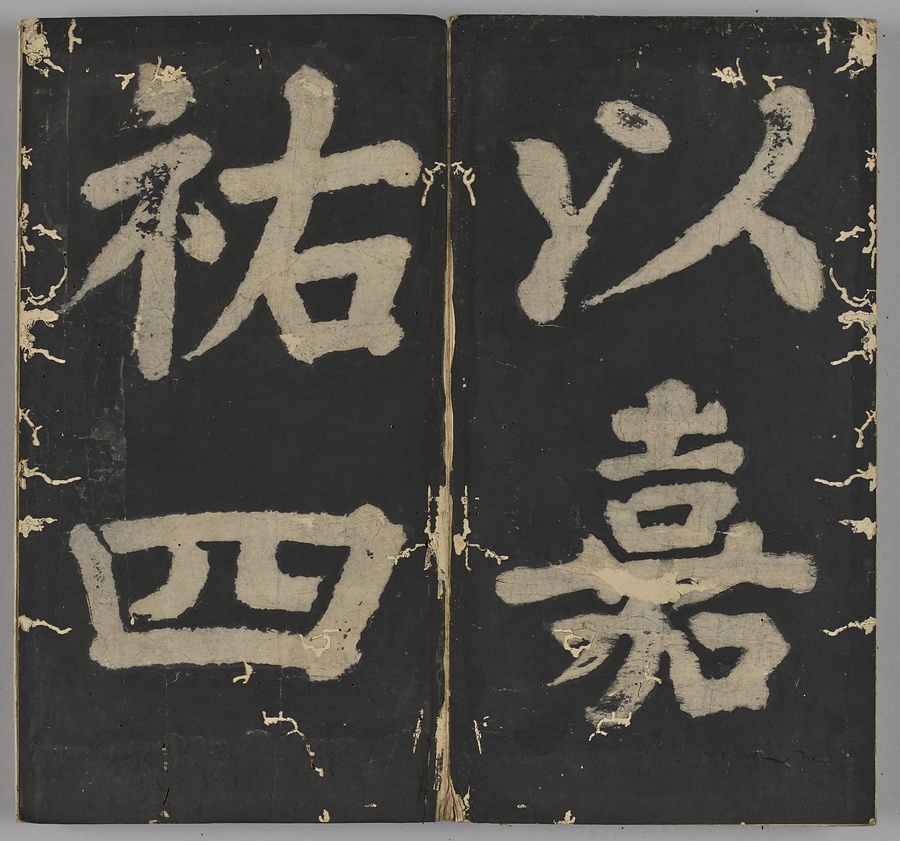 以嘉
祐四